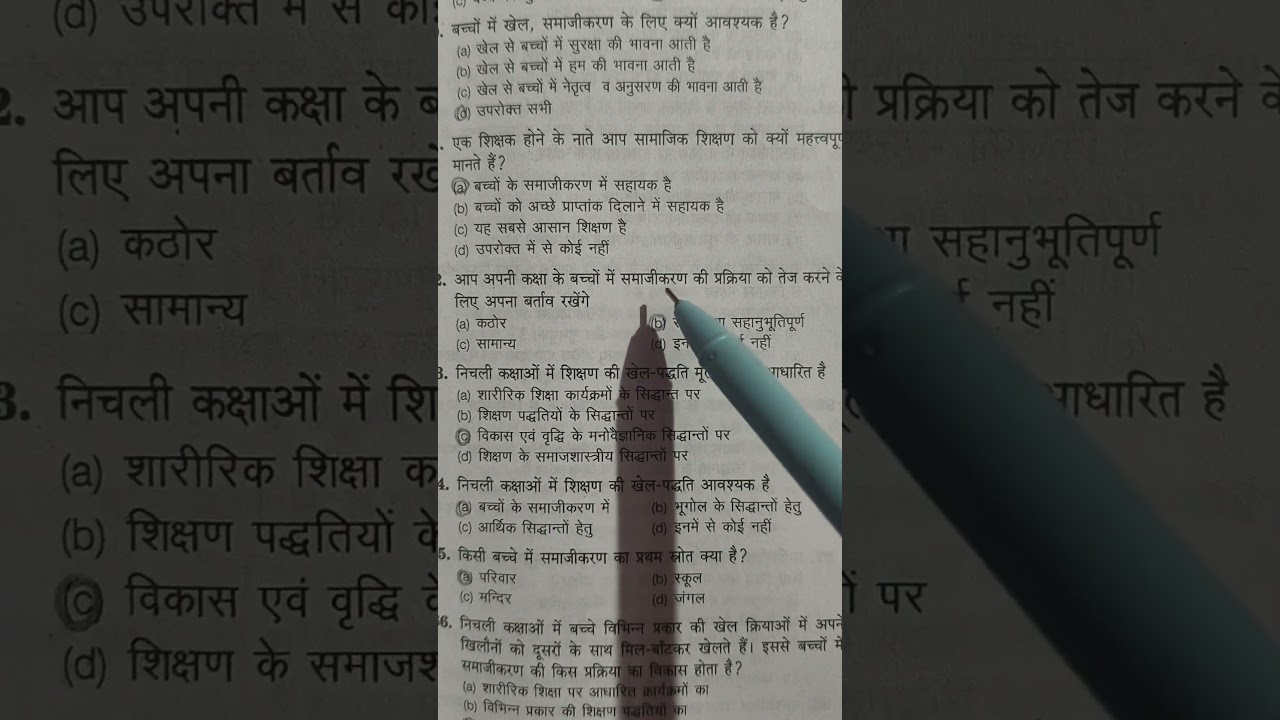 बच्चों में खेल, समाजीकरण के लिए क्यों आवश्यक है?
(a) खेल से बच्चों में सुरक्षा की भावना आती है
(b) खेल से बच्चों में हम की भावना आती है
(c) खेल से बच्चों में नेतृत्व व अनुसरण की भावना आती है
(d) उपरोक्त सभी
एक शिक्षक होने के नाते आप सामाजिक शिक्षण को क्यों महत्त्वपू
मानते हैं?
(a) बच्चों के समाजीकरण में सहायक है
(b) बच्चों को अच्छे प्राप्तांक दिलाने में सहायक है
(c) यह सबसे आसान शिक्षण है
(d) उपरोक्त में से कोई नहीं
2. आप अपनी कक्षा के बच्चों में समाजीकरण की प्रक्रिया को तेज करने के
लिए अपना बर्ताव रखेंगे
(a) कठोर (b) सहानुभूतिपूर्ण
(c) सामान्य (d) नहीं
3. निचली कक्षाओं में शिक्षण की खेल-पद्धति आधारित है
(a) शारीरिक शिक्षा कार्यक्रमों के सिद्धान्त पर
(b) शिक्षण पद्धतियों के सिद्धान्तों पर
(c) विकास एवं वृद्धि के मनोवैज्ञानिक सिद्धान्तों पर
(d) शिक्षण के समाजशास्त्रीय सिद्धान्तों पर
4. निचली कक्षाओं में शिक्षण की खेल-पद्धति आवश्यक है
(a) बच्चों के समाजीकरण में (b) भूगोल के सिद्धान्तों हेतु
(c) आर्थिक सिद्धान्तों हेतु (d) इनमें से कोई नहीं
5. किसी बच्चे में समाजीकरण का प्रथम स्रोत क्या है?
(a) परिवार (b) स्कूल
(c) मन्दिर (d) जंगल
6. निचली कक्षाओं में बच्चे विभिन्न प्रकार की खेल क्रियाओं में अपने
खिलौनों को दूसरों के साथ मिल-बाँटकर खेलते हैं। इससे बच्चों में
समाजीकरण की किस प्रक्रिया का विकास होता है?
(a) शारीरिक शिक्षा पर आधारित कार्यक्रमों का
(b) विभिन्न प्रकार की शिक्षण पद्धतियों का